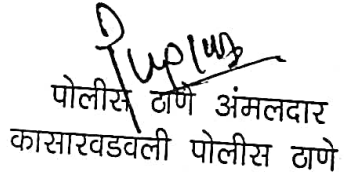 पोलीस ठाणे अंमलदार
कासारवडवली पोलीस ठाणे